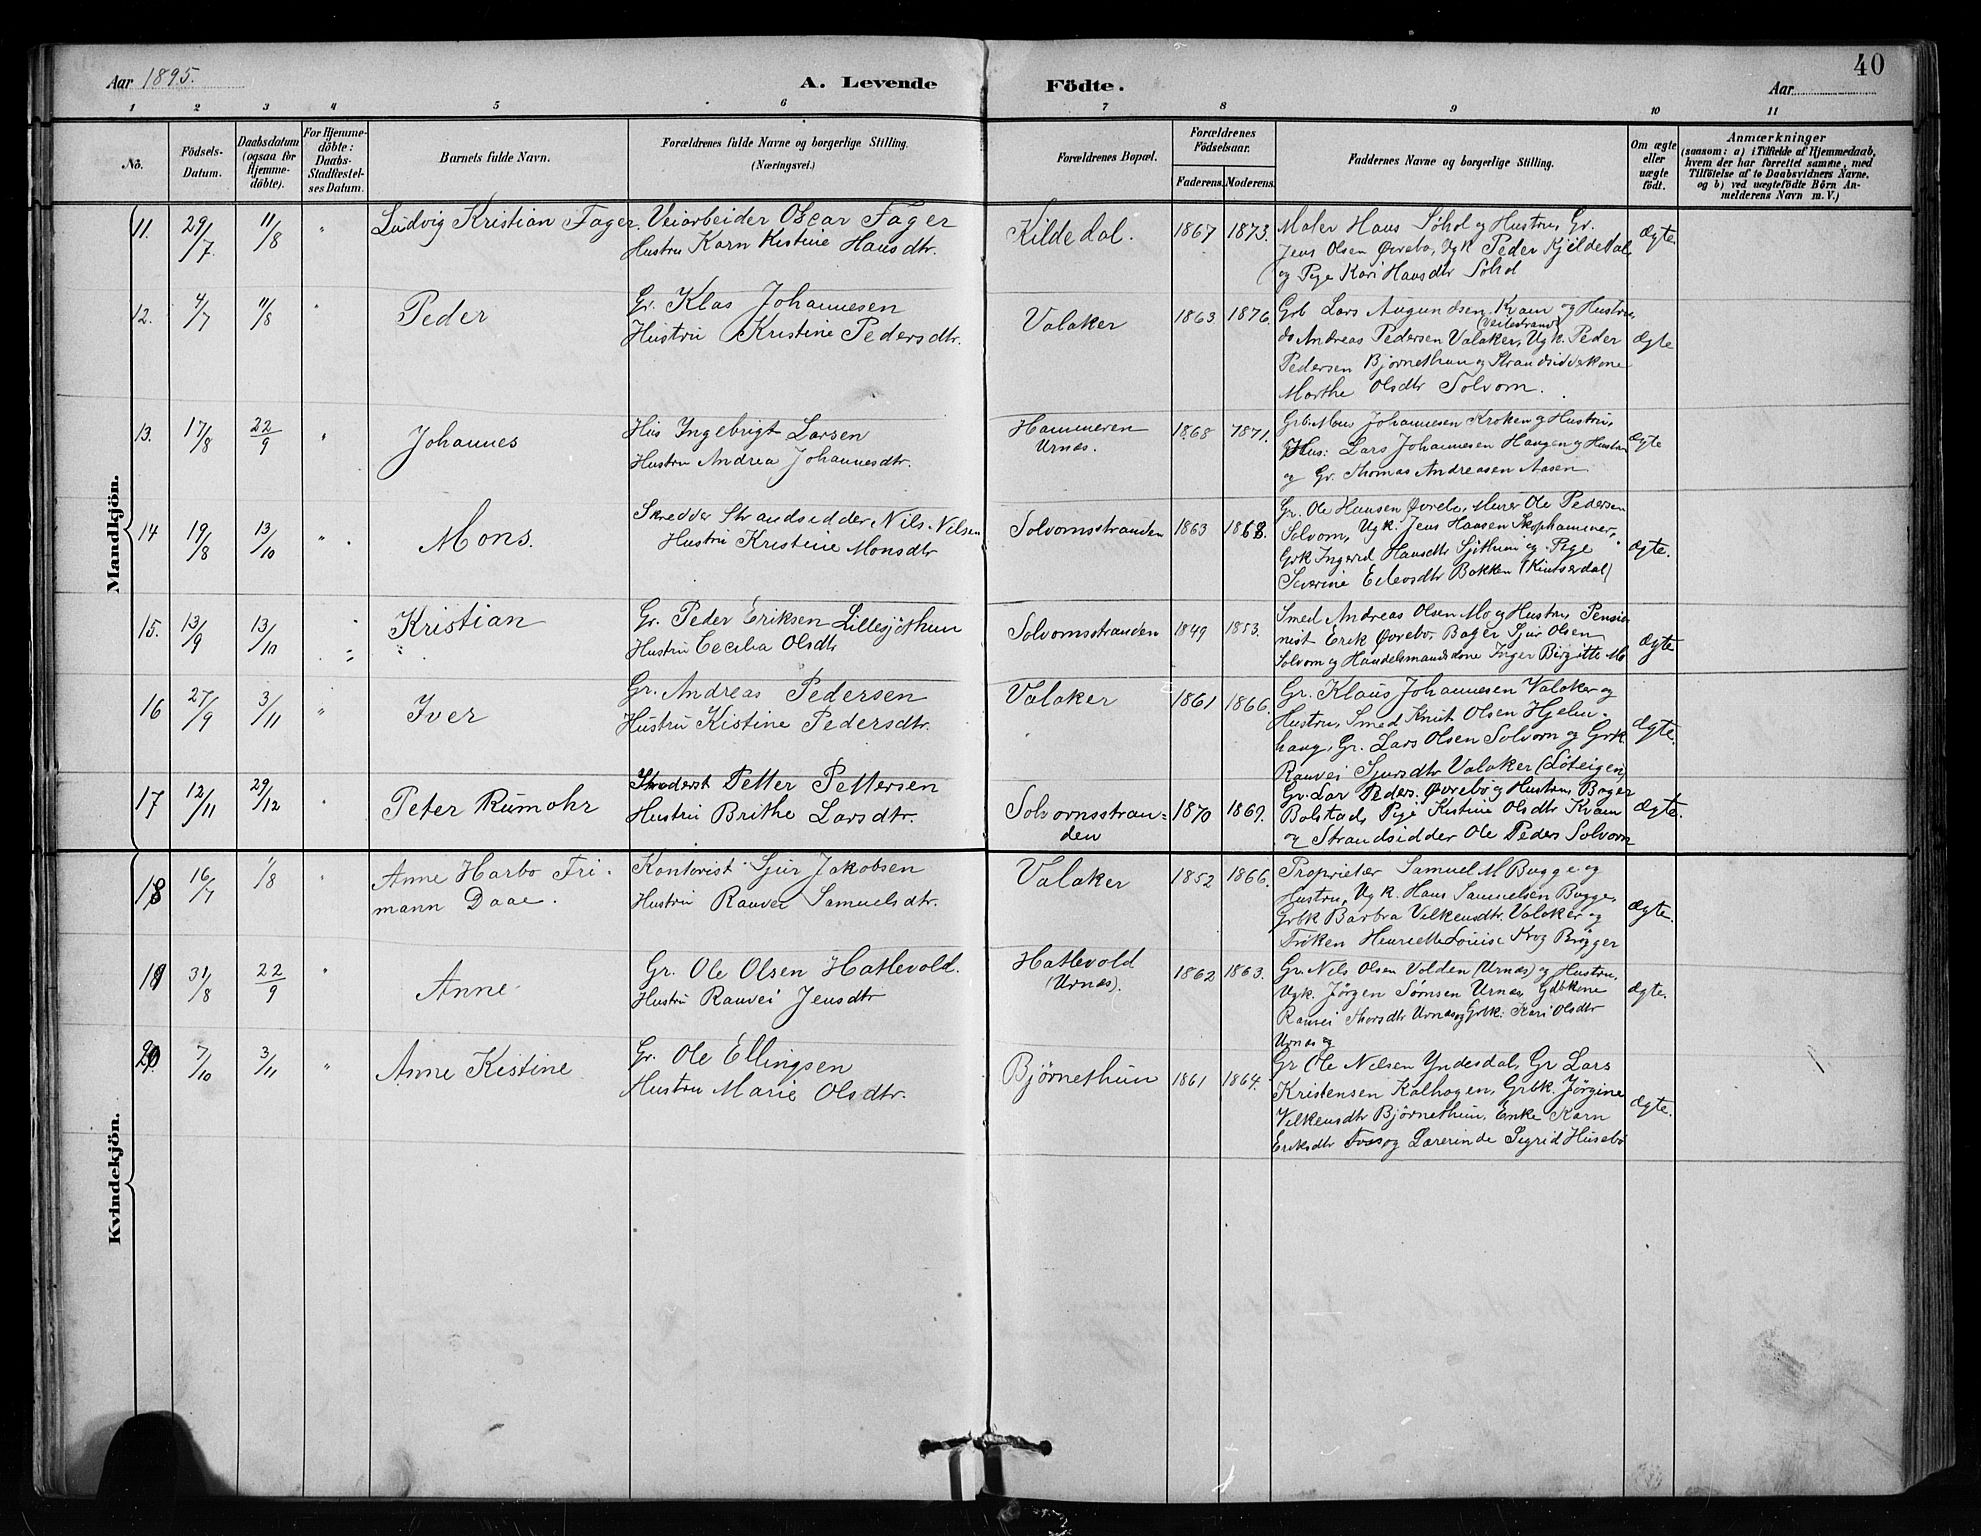 40
Aar 1895.
A. Levende Födte.
Aar
1 2 3 4 5 6 7 8 9 10 11
No.
Födsels-Datum.
Daabsdatum (ogsaa for Hjemme-döbte).
For Hjemme-döbte: Daabs-Stadfæstel-ses Datum.
Barnets fulde Navn.
Forældrenes fulde Navne og borgerlige Stilling. (Næringsvei.)
Forældrenes Bopæl.
Forældrenes Födselsaar.
Faderens. Moderens.
Faddernes Navne og borgerlige Stilling.
Om ægte eller uægte födt.
Anmærkninger
(saasom: a) i Tilfælde af Hjemmedaab,
hvem der har forrettet samme, med
Tilföielse af to Daabsvidners Navne.
og b) ved uægtefödte Börn An-
melderens Navn m. V.)
Mandkjön.
11. 29/7. 11/8 " Ludvig Kristian Fager. Veiarbeider Oscar Fager
Hustru Karn Kistine Hansdtr.
Kildedal. 1867 1873.
Maler Hans Søhol og Hustru, Gr.
Jens Olsen Øvrebø, Ugk Peder Kjildedal
og Pige Kari Hansdtr Søhol
Ægte
12. 4/7 11/8 " Peder
Gr. Klas Johannesen
Hustru Kristine Pedersdtr.
Valaker 1863 1876.
Grb Lars Augundsen Kvam og Hustru,
(Veitestrand)
do Andreas Pedersen Valaker, Ugk. Peder
Pedersen Bjørnethun og Strandsidderkone
Marthe Olsdtr Solvorn.
Ægte
13. 17/8 22/9 " Johannes
Hus Ingebrigt Larsen
Hustru Andrea Johannesdtr.
Hammeren
Urnæs.
1868 1871.
Grb. Johannesen Kroken og Hustru,
Hus: Lars Johannesen Haugen og Hustru
og Gr. Thomas Andreasen Aasen
Ægte
14 19/8 13/10 " Mons.
Skredder Strandsidder Nils Nilsen
Hustru Kristine Monsdtr
Solvornsstranden 1863 1868.
Gr. Ole Hansen Øvrebø, Murer Ole Pedersen
Solvorn, Ugk. Jens Hansen Skophammer,
Grk Ingerid Hansdtr Sjøthun og Pige
Severine Eilevsdtr Bakken
Ægte.
15. 13/9 13/10 " Kristian
Gr. Peder Eriksen Lillesjøthun
Hustru Cecilia Olsdtr
Solvornsstranden 1849 1853.
Smed Andreas Olsen Mo og Hustru, Pensio
nist Erik Øvrebø, Bager Sjur Olsen
Solvorn og Handelsmandskone Inger Birgitte Mo
Ægte
16 27/9 3/11 " Iver
Gr. Andreas Pedersen
Hustru Kistine Pedersdtr.
Valaker 1861 1866.
Gr. Klaus Johannesen Valaker og
Hustru, Smed Knut Olsen Hjelm-
haug, Gr. Lars Olsen Solvorn og Grk.
Ranvei Sjursdtr Valaker (Løteigen)
Ægte.
17 12/11 29/12 " Peter Rumohr
Petter Pettersen
Hustru Brithe Larsdtr.
Solvornsstran=
den
1870 1869.
Gr. Lar Peders. Øvrebö og Hustru, Bager
Bolstad, Pige Kistine Olsdtr Kvam
og Strandsidder Ole Peders Solvorn
Ægte.
Kvindekjön.
18 16/7 1/8 " Anne Harbo Fri-
mann Daae.
Kontorist Sjur Jakobsen
Hustru Ranvei Samuelsdtr.
Valaker 1852 1866.
Proprietær Samuel M Bugge og
Hustru, Ugk. Hans Samuelsen Bugge,
Grbk Barbra Vilkensdtr. Valaker og
Frøken Henriette Louise Krog Brøgger
Ægte.
19 31/8 22/9 " Anne
Gr. Ole Olsen Hatlevold.
Hustru Ranvei Jensdtr
Hatlevold
(Urnæs).
1862 1863.
Gr. Nils Olsen Volden (Urnæs) og Hustru,
Ugk. Jørgen Urnæs, Gdbkone
Ranvei Thorsdtr Urnæs og Grbk: Kari Olsdtr
Urnæs og
Ægte.
20. 7/10 3/11 " Anne Kistine
Gr. Ole Ellingsen
Hustru Marie Olsdtr.
Bjørnethun 1861 1864.
Gr Ole Nilsen Yndesdal, Gr Lars
Kristensen Kalhagen, Grbk. Jørgine
Vilkensdtr Bjørnethun, Enke Karn
Eriksdtr og Lærerinde Sigrid Husebø
Ægte.